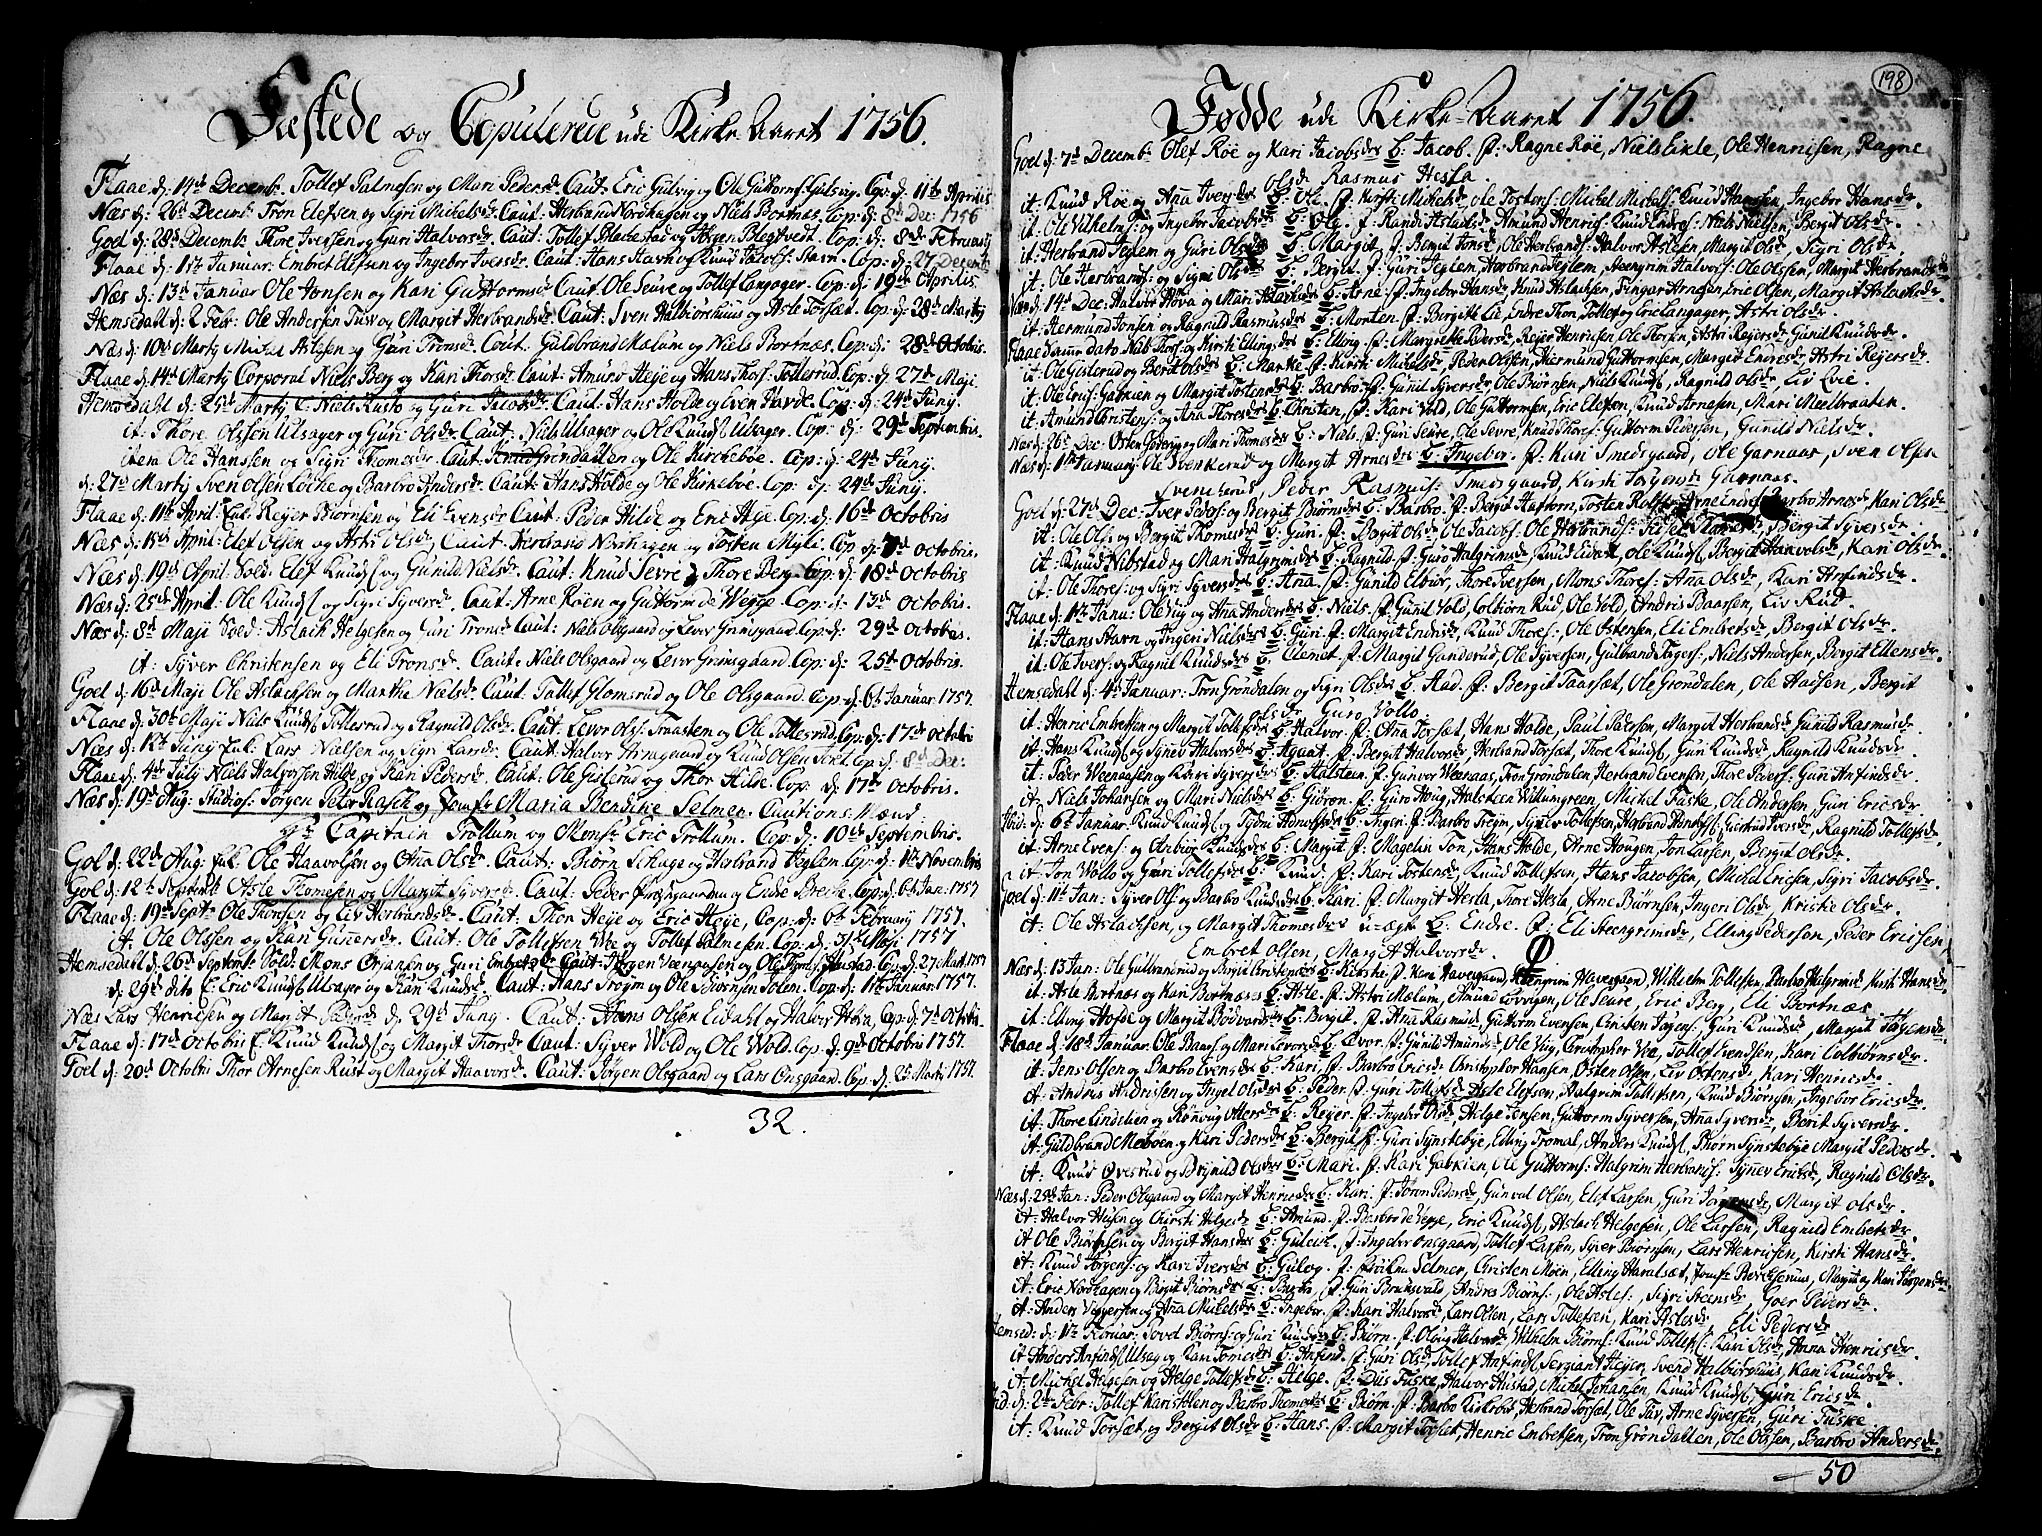 Fæstede og Copulerede udi Kirke-Aaret 1756.
Flaae d: 14d Decembr. Tollef Palmesen og Mari Pedersdr. Caut: Eric Gulsvig og Ole Guttorms: Gulsvig. Cop: d: 11te Aprilis
Næs d: 26d Decemb: Tron Elefsen og Sigri Michelsdr. Caut: Herbrand Nordhagen og Niels Bortnæs. Cop: d: 8d Dec: 1756
Goel d: 28d Decemb: Thore Iversen og Guri Halvorsdr. Caut: Tollef Cop: d: 8de February
Flaae d: 1te Januar: Embret Elefsen og Ingebor Iversdr. Caut: Hans Stavn og Knud Jacobs: Stavn. Cop: d: 27 Decemb:
Næs d: 13d Januar Ole Jonsen og Kari Guttormsdr. Caut: Ole Sevre og Tollef Langager. Cop: d: 19de Aprilis
Hemsedahl d: 2 Febr: Ole Andersen Tuv og Margit Herbrandsdr. Caut: Sven Halbiorhuus og Asle Torset. Cop: d: 28d Marty
Næs d: 10d Marty Michel Aslesen og Guri Tronsdr. Caut: Guldbrand Mælum og Niels Bortnæs. Cop: d: 28d Octobris.
Flaae d: 14d Marty Corporal Niels Berg og Kari Thorsdr. Caut: Amund Heje og Hans Thors: Tollesrud. Cop: d: 27d Maji
Hemsedahl d: 25d Marty Niels Kusto og Guri Jacobsdr. Caut: Hans Holde og Cop: d: 24d Juny.
it: Thore Olssen Ulsager og Guri Olsdr. Caut: Niels Ulsager og Ole Knuds: Ulsager. Cop: d: 29d Septembris.
item Ole Hanssen og Sigri Thomesdr. Caut: Knud Grøndallen og Ole Kirkeboe. Cop: d: 24d Juny.
d: 27d Marty Sven Olsen Løcke og Barbro Andersdr. Caut: Hans Holde og Ole Kirkeboe. Cop: d: 24d Juny.
Flaae d: 11te April: Enk: Reyer Biørnsen og Eli Evensdr. Caut: Peder Hilde og Eric Heje. Cop: d: 16d Octobris
Næs d: 15de April: Elef Olsen og Astri Olsdr. Caut: Herbrand Nordhagen og Tosten Myli. Cop. d: 7d Octobris.
Næs d: 19d April Sold. Elef Knuds: og Gunild Nielsdr. Caut: Knud Sevre og Thore Berg. Cop: d: 18d Octobris
Næs d: 25de April: Ole Knuds: og Sigri Syversdr. Caut: Arne Røen og Guttorm de Wegge. Cop: d: 13d Octobris.
Næs d: 8d Maji Sold: Aslach Helgesen og Guri Tronsdr. Caut: Niels Olsgaard og Lever Grimsgaard. Cop: d: 29d Octobris.
it: Syver Christensen og Eli Tronsdr. Caut: Niels Olsgaard og Lever Grimsgaard. Cop: d: 25d Octobris.
Goel d: 16d Maji Ole Aslachsen og Martha Nielsdr. Caut: Tollef Glomsrud og Ole Olsgaard. Cop: d: 6te Januar: 1757.
Flaae d: 30te Maji Niels Knuds: Tollesrud og Ragnild Olsdr. Caut: Levor Ols: Traasteen og Ole Tollesrud. Cop: d: 17d Octobri
Næs d: 12te Juny Enk: Lars Nielsen og Sigri Larsdr. Caut: Halvor Arnegaard og Knud Olsen Cop. d: 8d Dec:
Flaae d: 4d July Niels Halvorsen Hilde og Kari Pedersdr. Caut: Ole Gislerud og Thor Hilde. Cop: d: 17de Octobris.
Næs d: 19d Aug: Studios: Jørgen Peter Rasch og Jomfr: Maria Bendicte Selmer. Cautions-Mænd
Hr: Capitain Trollum og Mons: Eric Trollum. Cop: d: 10d Septembris.
Gol d: 22d Aug: Enk: Ole Haavolsen og Ana Olsdr. Caut: Biørn Schage og Herbrand Jeglem. Cop: d: 1te Novembris
Goel d: 12te Septemb: Asle Thomesen og Margit Syversdr. Caut: Peder Engegaarden og Endre Brecke. Cop: d: 6te Jan: 1757
Flaae d: 19d Sept: Ole Thorsen og Liv Herbrandsdr. Caut: Thor Heje og Eric Heje, Cop: d: 6te February 1757.
it. Ole Olssen og Kari Gunersdr. Caut: Ole Tollefsen Vee og Tollef Palmesen. Cop: d: 31te Maji 1757
Hemsedahl d: 26d Septemb: Sold: Mons Ørjansen og Guri Embretsdr. Caut: Jørgen Veenaasen og Ole Hustad. Cop: d: 27 Martt 1757
d: 29d dito C: Eric Knuds: Ulsager og Kari Knudsdr. Caut: Hans Trøym og Ole Biørnsen Tolen. Cop: d: 1te Januari 1757.
Næs Lars Henricsen og Margit Pedersdr. d: 29d Jung. Caut: Hans Olsen Eidahl og Halvor Hova, Cop: d: 7de Octobr.
Flaae d: 17d Octobris C. Knud Knuds: og Margit Thorsdr. Caut: Syver Wold og Ole Wold. Cop: d: 9d Octobris 1757.
Goel d: 20d Octobri Thor Arnesen Rust og Margit Haavorsdr. Caut: Jørgen Olsgaard og Lars Onsgaard. Cop: d: 25 Marti 1757.
32.
198
Fødde udi Kirke-Aaret 1756.
Goel d: 7d Decemb: Olef Røe og Kari Jacobsdr B: Jacob. F: Ragne Røe, Niels Eikle, Ole Henricsen, Ragne
Olsdr Rasmus Hesla.
it: Knud Røe og Ana Iversdr B: Ole. F: Kirsti Michelsdr, Ole Tostens: Michel Michels: Knud Hanssen, Ingebor Hansdr.
it: Ole Vilhelms: og Ingebor Jacobsdr B: Ole. F: Randi Aslachsdr Amund Henrics: Knud Endres: Niels Nielsen, Bergit Olsdr.
it: Herbrand Jeglem og Guri Olsdr B: Margit. F: Bergit Jonsdr, Ole Herbrands: Halvor Aslesen, Margit Olsdr Sigri Olsdr
it. Ole Herbrands: og Signe Olsdr B: Bergit. F: Guri Jeglem, Herbrand Jeglem, Steengrim Halvors: Ole Olssen, Margit Herbrandsdr
Næs d: 14d Dec: Halvor Hova og Mari Aslachsdr B: Arne. F: Ingebor Hansdr Knud Aslachsen, Fingar Arnesen, Eric Olsen, Margit Aslachsdr.
it. Hermund Jonsen og Ragnild Rasmusdr B: Morten. F: Bergitte Lie, Endre Thon, Tollef og Eric Langager, Astri Olsdr.
Flaae Samme dato Niels Thors: og Kirsti Ellingsdr B: Ellvig. F: Margrette Iversdr, Reyer Henricsen, Ole Thorsen, Astri Reyersdr, Gunil Knudsdr.
it: Ole Gislerud og Berit Olsdr B: Marthe F: Kirsti Michelsdr, Peder Olssen, Hermund Guttormsen, Margit Endresdr, Astri Reyersdr.
it. Ole Erics: Gabrien og Margit Tostensdr B: Barbro F: Gunil Syversdr Ole Biørnsen, Niels Knuds: Ragnild Olsdr, Liv Evie.
it: Amund Christens: og Ana Thoresdr B: Christen, F: Kari Vold, Ole Guttormsen, Eric Elefsen, Knud Arnesen, Mari Meelbraaten.
Næs d: 26te Dec: Osten Gjervig og Mari Thomesdr B: Niels. F: Guri Sevre, Ole Sevre, Knud Thores: Guttorm Pedersen, Gunild Nielsdr.
Næs d: 1te January: Ole Svenkerud og Margit Arnesdr B: Ingebor. F: Kari Smedsgaard, Ole Garnaas, Sven Olsen
Svencherud, Peder Rasmus: Smedsgaard, Kirsti Jørgensdr Garnaas.
Goel d: 27d Dec: Iver Peders: og Bergit Biørnsdr B: Barbro. F: Bergit Haftorn, Tosten Rotnem, Arne Barbro Arnesdr, Kari Olsdr
it: Ole Ols: og Bergit Thomesdr B: Guri. F: Bergit Olsdr, Ole Jacobs: Ole Herbrands: Bergit Syversdr.
it: Knud Nibstad og Mari Halgrimsdr B: Ragnild. F: Guro Halgrimsdr, Knud Eidene, Ole Knuds: Bergit Haavolsdr, Kari Olsdr.
it: Ole Thores: og Sigri Syversdr B: Ana. F: Gunild Elbiør, Thore Iversen, Mons Thores: Ana Olsdr, Kari Anfindsdr.
Flaae d: 1te Janu: Ole Viig og Ana Andersdr B: Niels. F: Gunil Vold, Colbiørn Rud, Ole Vold, Andris Baarsen, Liv Rud.
it: Hans Stavn og Ingeri Nielsdr B: Guri. F: Margit Endrisdr, Knud Thores: Ole Ostensen, Eli Embretsdr, Bergit Olsdr.
it: Ole Ivers: og Ragnil Knudsdr B: Clemet. F: Margit Gunderud, Ole Syversen, Gulbrand Niels Andersen, Bergit Ellensdr.
Hemsedahl d: 4d Januar: Tron Grøndalen og Sigri Olsdr B: Aad. F: Bergit Taasset, Ole Grøndalen, Ole Aadsen, Bergit
Olsdr, Guro Vollo.
it: Henric Embretsen og Margit Tollefsdr B: Halvor. F: Ana Torsæt, Hans Holde, Paul Pedersen, Margit Herbrandsdr Gunild Rasmusdr
it: Hans Knuds: og Synev Halvorsdr B: Agaat. F: Bergit Halvorsdr Herbrand Torsæt, Thore Knuds: Guri Knudsdr Ragnild Knudsdr.
it: Peder Weenaasen og Kari Syversdr B: Halsteen. F: Gunvor Weenaas, Tron Grøndalen, Herbrand Evensen, Thore Peders: Guri Anfindsdr
it. Niels Johansen og Mari Nielsdr B: Giøron. F: Guro Houg, Halsteen Villungreen, Michel Fuske, Ole Andersen, Guri Ericsdr
Ibid: d: 6te Januar: Knud Knuds: og B: Jegen. F: Barbro Trøym, Syver Tollefsen, Herbrand Gertrud Iversdr, Ragnild Tollefsdr.
it: Arne Evens: og Anbior Knudsdr B: Margit. F: Magelin Ton, Hans Holde, Arne Hougen, Jon Larsen, Bergit Olsdr.
it. Jon Vollo og Guri Tollefsdr B: Knud. F: Kari Tostensdr Knud Tollefsen, Hans Jacobsen, Michel Ericsen, Sigri Jacobsdr.
Goel d: 11te Jan: Syver Ols: og Barbro Knudsdr B: Kari. F: Margit Hesla, Thore Hesla, Arne Biørnsen, Ingeri Olsdr Kristie Olsdr.
it. Ole Aslachsen, og Margit Thomesdr u-ægt B: Endre. F: Eli Steengrimsdr, Elling Pedersen, Peder Ericsen
Embret Olsen, Margit Halvorsdr.
Næs d: 13 Jan: Ole Gulbrandsrud og Bergit Christensdr B: Kirstie. F: Kari Havegaard, Steengrim Havegaard, Wilhelm Tollefsen, Barbro Halgrimsdr Kirsti Hansdr,
it: Asle Bortnæs og Kari Bortnæs B: Asle. F: Astri Mælum, Amund Lovrigen, Ole Sevre, Eric Berg, Eli Bortnæs
it: Elling Hofde og Margit Bodvarsdr B: Birgit. F: Ana Rasmusdr, Guttorm Evensen, Christen Jørgens: Guri Knudsdr, Margit Jørgensdr
Flaae d: 16d Januar: Ole Baars: og Mari Levorsdr B: Levor. F: Gunild Amundsdr Ole Viig, Christopher Vee, Tollef Evendsen, Kari Colbiørnsdr.
it: Jens Olsen og Barbro Evensdr B: Kari, F: Barbro Ericsdr, Christopher Hansen, Osten Olsen, Liv Ostensdr, Kari Henricsdr.
it: Andris Andrissen og Ingel Olsdr B: Peder. F: Guri Tollefsdr Asle Elefsen, Halgrim Tollefsen, Knud Biørnsen, Ingebor Ericsdr.
it: Thore Lindelien og Rønnoug Ottersdr B: Reyer. F: Ingebor Olsdr, Helge Jensen, Guttorm Syversen, Ana Syversdr, Berit Syversdr.
it: Guldbrand Meboen og Kari Pedersdr B: Bergit. F: Guri Synstebye, Elling Tromal, Anders Knuds: Thorn Synstebye Margit Pedersdr.
it. Knud Øvesrud og Brynild Olsdr B: Mari. F: Kari Gabrien, Ole Guttorms: Halgrim Herbrands: Synev Ericsdr, Ragnild Olsdr.
Næs d: 23d Jan: Peder Olsgaard og Margit Henricsdr B: Kari. F: Jøron Pedersdr, Gunval Olsen, Elef Larsen, Guri Margit Olsdr.
it. Halvor Heisen og Christi Helgesdr B: Amund. F: Barbro de Vegge, Eric Knuds: Aslach Helgesen, Ole Larsen, Ragnild Embretsdr.
it Ole Biørnsen og Bergit Hansdr B: Gulech. F: Ingebor Onsgaard, Tollef Larsen, Syver Biørnsen, Lars Henricsen, Kirsti Hansdr.
it. Knud Jørgens: og Kari Iversdr B: Gulov. F: Selmer, Christen Moen, Elling Haralsæt, Jomfr: Margit og Kari Jørgensdr
it: Eric Nordhagen og Birgit Biørnsdr B: Berte. F: Guri Bruksvald, Andres Biørns: Ole Asles: Sigri Steensdr Goer Pedersdr.
it. Anders Veggersen og Ana Michelsdr B: Ingebor. F: Kari Halvorsdr Lars Olsen, Lars Tollefsen, Kari Aslesdr, Eli Pedersdr
Hemsed: d: 1te Februar: Povel Biørns: og Guri Knudsdr B: Biørn. F: Oloug Halvorsdr Wilhelm Biørns: Knud Tollefs: Kari Olsdr, Anna Henricsdr.
it Anders Anfinds: Ulsag og Kari Tomesdr B: Anfind. F: Guri Olsdr, Tollef Anfinds: Sergiant Heyer, Svend Halbiorhuus, Kari Knudsdr.
it. Michel Helgesen og Helge Tollefsdr B: Helge. F: Due Fuske, Halvor Hustad, Michel Johansen, Knud Knuds: Guri Ericsdr.
Ibid: d: 2de Febr: Tollef Karisteen og Barbro Thomesdr B: Biørn. F: Barbro Kirkeboe, Herbrand Torsæt, Ole Tuv, Arne Syversen, Guri Fuske.
it. Knud Torset, og Bergit Olsdr B: Hans. F: Margit Torset, Henric Embretsen, Tron Grøndallen, Ole Olssen, Barbro Andersdr.
50